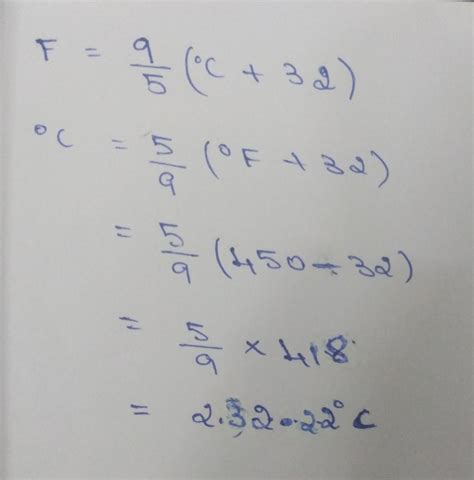 F = 9/5 (°C + 32)
°C = 5/9 (°F + 32)
= 5/9 (450 - 32)
= 5/9 × 418
= 2.32.22° C